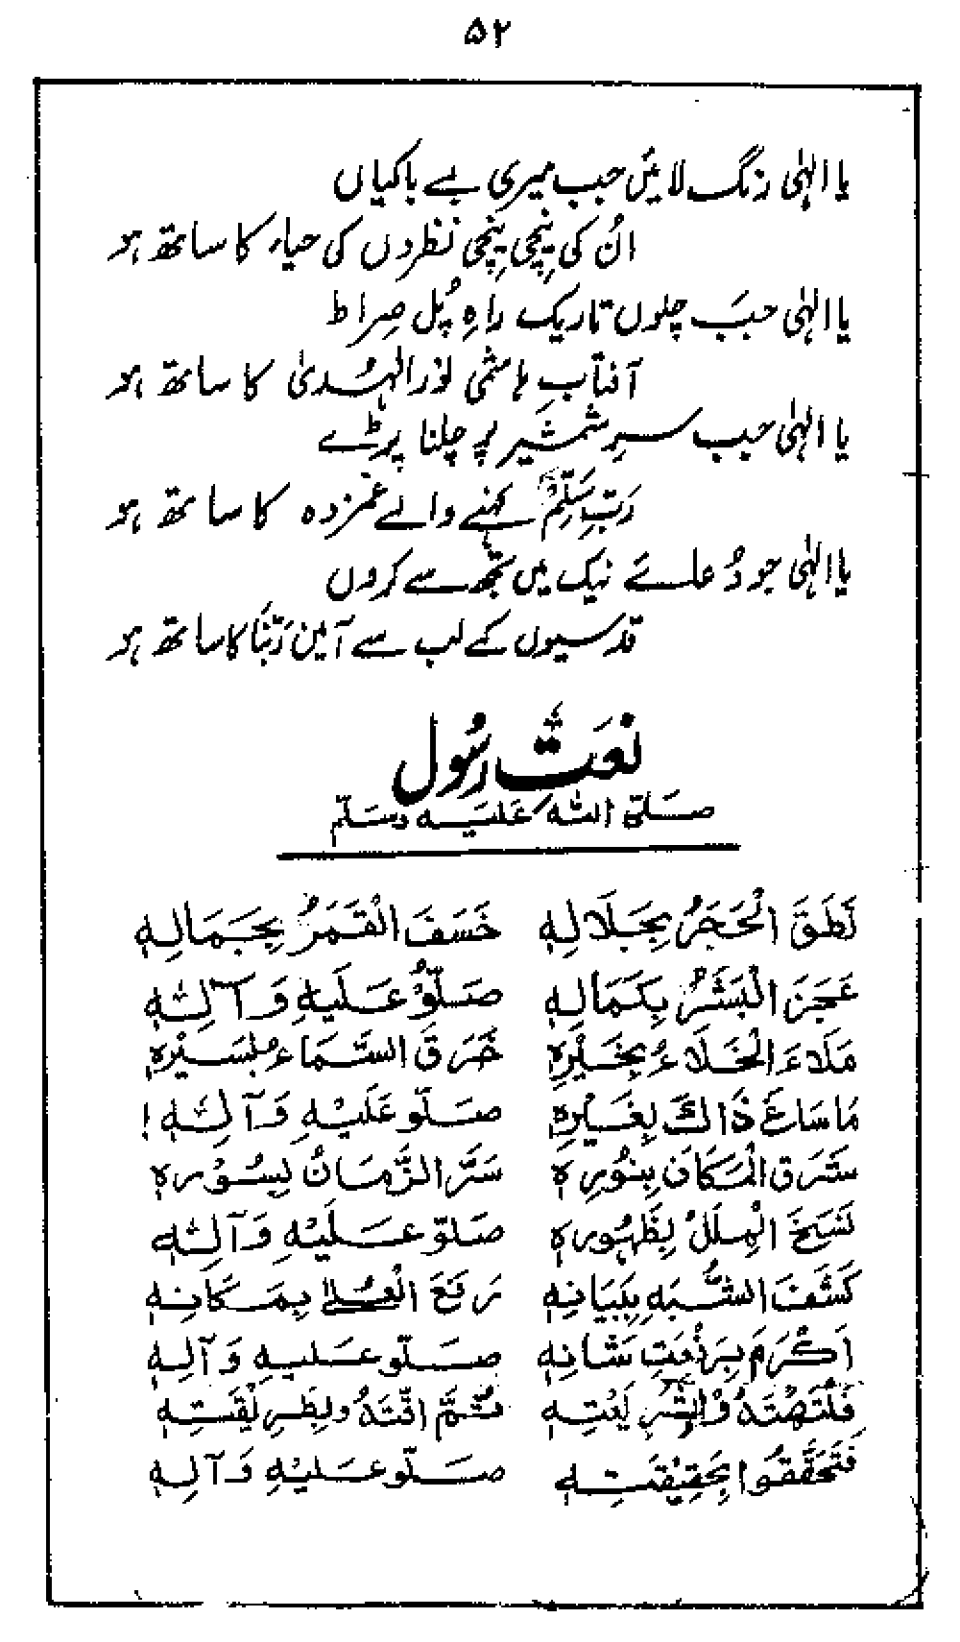 ۵۲
یا الہٰی رنگ لائیں جب میری بے باکیاں
اُن کی نیچی نیچی نظروں کی حیاء کا ساتھ ہو
یا الہٰی جب چلوں تاریک راہِ پُل صِراط
آفتابِ ہاشمی نورالہُدیٰ کا ساتھ ہو
یا الہٰی جب سرِ شمشیر پر چلنا پڑے
رَبِّ سَلِّمْ کہنے والے غمزدہ کا ساتھ ہو
یا الہٰی جو دُعائے نیک میں تجھ سے کروں
قدسیوں کے لب سے آمین رَبَّنَا کا ساتھ ہو
نعت رسُول
صَلَّی اللہُ عَلَیْہِ وَسَلَّم
نَطَقَ الْحَجَرُ بِجَلَالِہٖ خَسَفَ الْقَمَرُ بِجَمَالِہٖ
عَجَزَ الْبَشَرُ بِكَمَالِہٖ صَلُّوْ عَلَیْہِ وَآلِہٖ
مَلَاءَ الْخَلَاءُ بِخَیْرِہٖ خَرَقَ السَّمَاءُ بِسَیْرِہٖ
مَا سَاغَ ذَالِكَ لِغَیْرِہٖ صَلُّو عَلَیْہِ وَآلِہٖ !
شَرَقَ الْمَكَانَ بِنُوْرِہٖ سَرَّ الزَّمَانُ لِسُوْرِہٖ
نَسَخَ الْمِلَلُ بِظُہُورِہٖ صَلُّو عَلَیْہِ وَآلِہٖ
كَشَفَ الشُّبَہِ بِبَیَانِہٖ رَفَعَ الْعُلےٰ بِمَكَانِہٖ
اَكْرَمَ بِرَفْعَتِ شَانِہٖ صَلُّو عَلَیہِ وَآلِہٖ
ثُمَّ
فَتَحَقَّقُوا بِحَقِیْقَتِہٖ صَلُّو عَلَیْہِ وَآلِہٖ